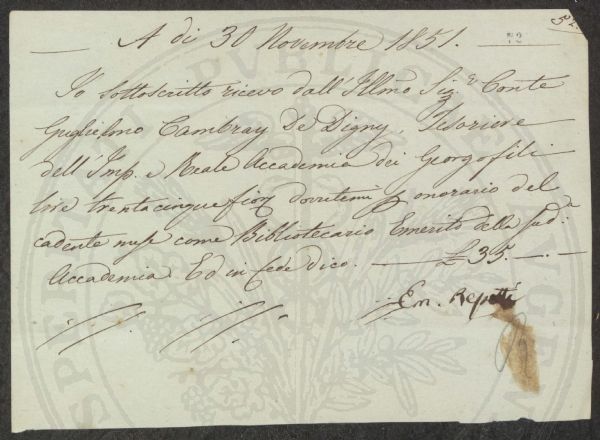 52
72
A dì 30 Novembre 1851.
Io sottoscritto ricevo dall'Illmo Sig.e Conte
Guglielmo Cambray De Digny, Tesoriere
dell'Imp. e Reale Accademia dei Georgofili
lire trentacinque fior dovutemi p onorario del
cadente mese come Bibliotecario Emerito della sud.a
Accademia. Ed in fede dico. — £ 35. —
Em. Repetti
PVBLICAE